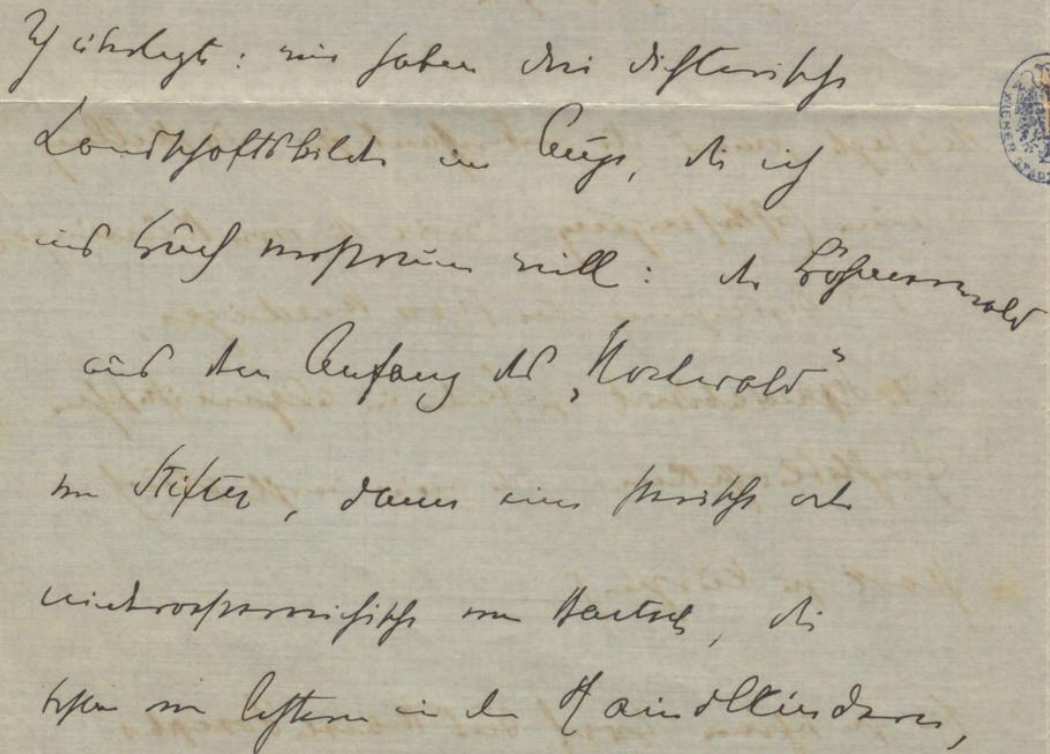 Ich überlegte: wir haben drei dichterische
Landschaftsbilder im Auge, die ich
ins Buch will: der Böhmerwald
aus dem Anfang des „Hochwald"
von Stifter, dann eine steirische oder
niederösterreichische von Bartsch, die
von in den Haindlkindern,
WIENER STADT